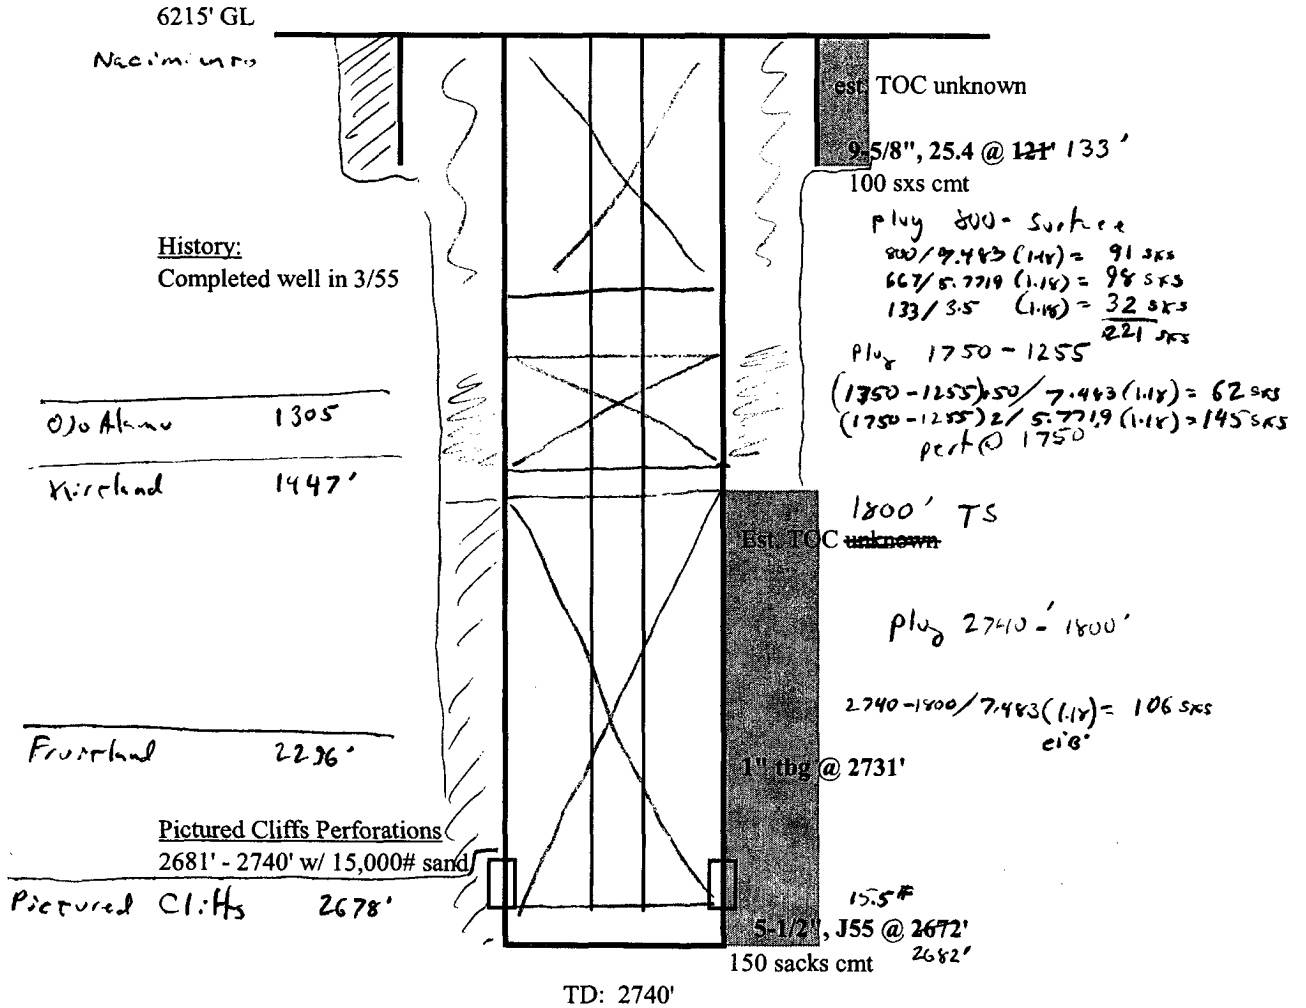 6215' GL
Nacimiento
est. TOC unknown
9-5/8", 25.4 @ 121' 133'
100 sxs cmt
plug 800 - Surface
800/7.483 (1.18) = 91 sxs
667/5.7719 (1.18) = 98 sxs
133/3.5 (1.18) = 32 sxs
221 sxs
History:
Completed well in 3/55
Plug 1750 - 1255
(1750-1255).50/7.483(1.18) = 62 sxs
(1750-1255)2/5.7719(1.18) = 145 sxs
perf @ 1750
Ojo Alamo 1305
Kirtland 1447'
1800' TS
Est. TOC unknown
plug 2740' - 1800'
2740-1800/7.483(1.18) = 106 sxs
Fruitland 2296'
1" tbg @ 2731'
Pictured Cliffs Perforations
2681' - 2740' w/ 15,000# sand
Pictured Cliffs 2678'
15.5#
5-1/2", J55 @ 2672'
2682'
150 sacks cmt
TD: 2740'